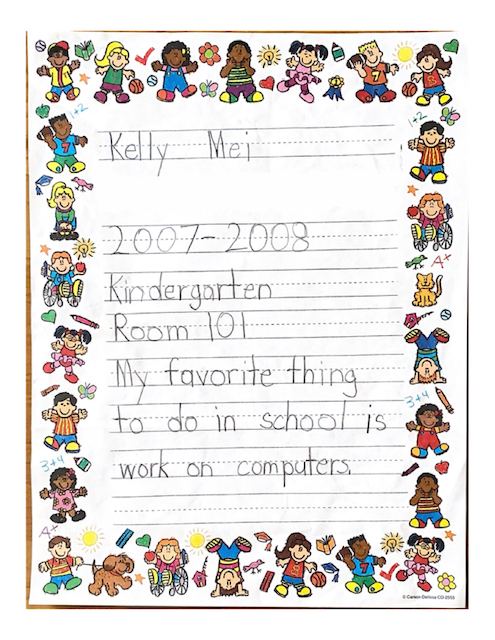 Kelly Mei
2007-2008
Kindergarten
Room 101
My favorite thing
to do in school is
work on computers.
1+2
1+2
A+
3+4
3+4
A+
© Carson-Dellosa CD-2555